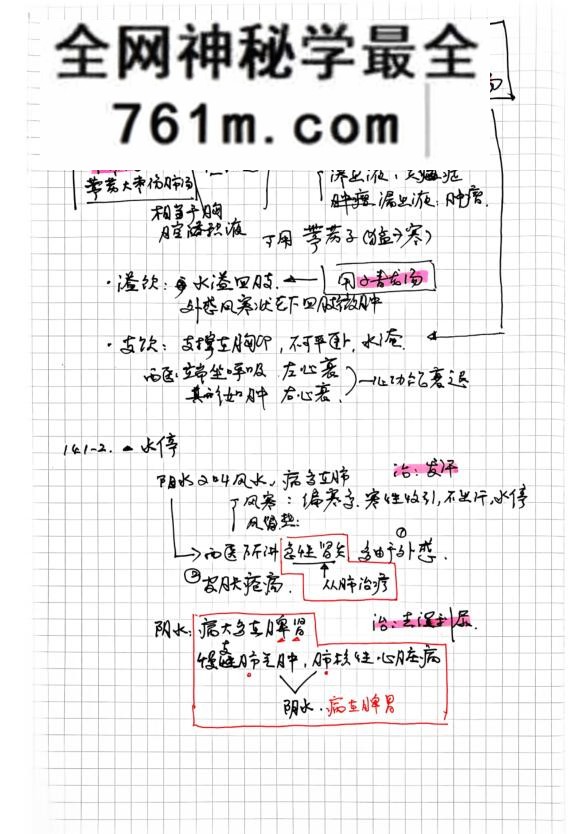 全网神秘学最全
761m.com
汤
葶苈大枣泻肺汤
渗出液:炎癌症
肿瘤 漏出液:肿瘤.
相当于胸
腔内积液
可用 葶苈子(猛,寒)
·溢饮: 水溢四肢. ← 用小青龙汤
外感风寒状态下四肢微肿
·支饮: 支撑在胸中, 不可平卧, 水淹.
西医: 端坐呼吸 左心衰
其形如肿 右心衰 心功能衰退
14.1-2. 水停
阳水又叫风水, 病多在肺 治:发汗
风寒: 偏寒多. 寒性收引, 不出汗, 水停
风热:
西医所讲 急性肾炎 多由于外感. ①
② 皮肤疮病. 从肺治疗
阴水: 病大多在脾肾 治:去湿利尿
慢支肺气肿, 肺核性心脏病
阴水. 病在脾肾